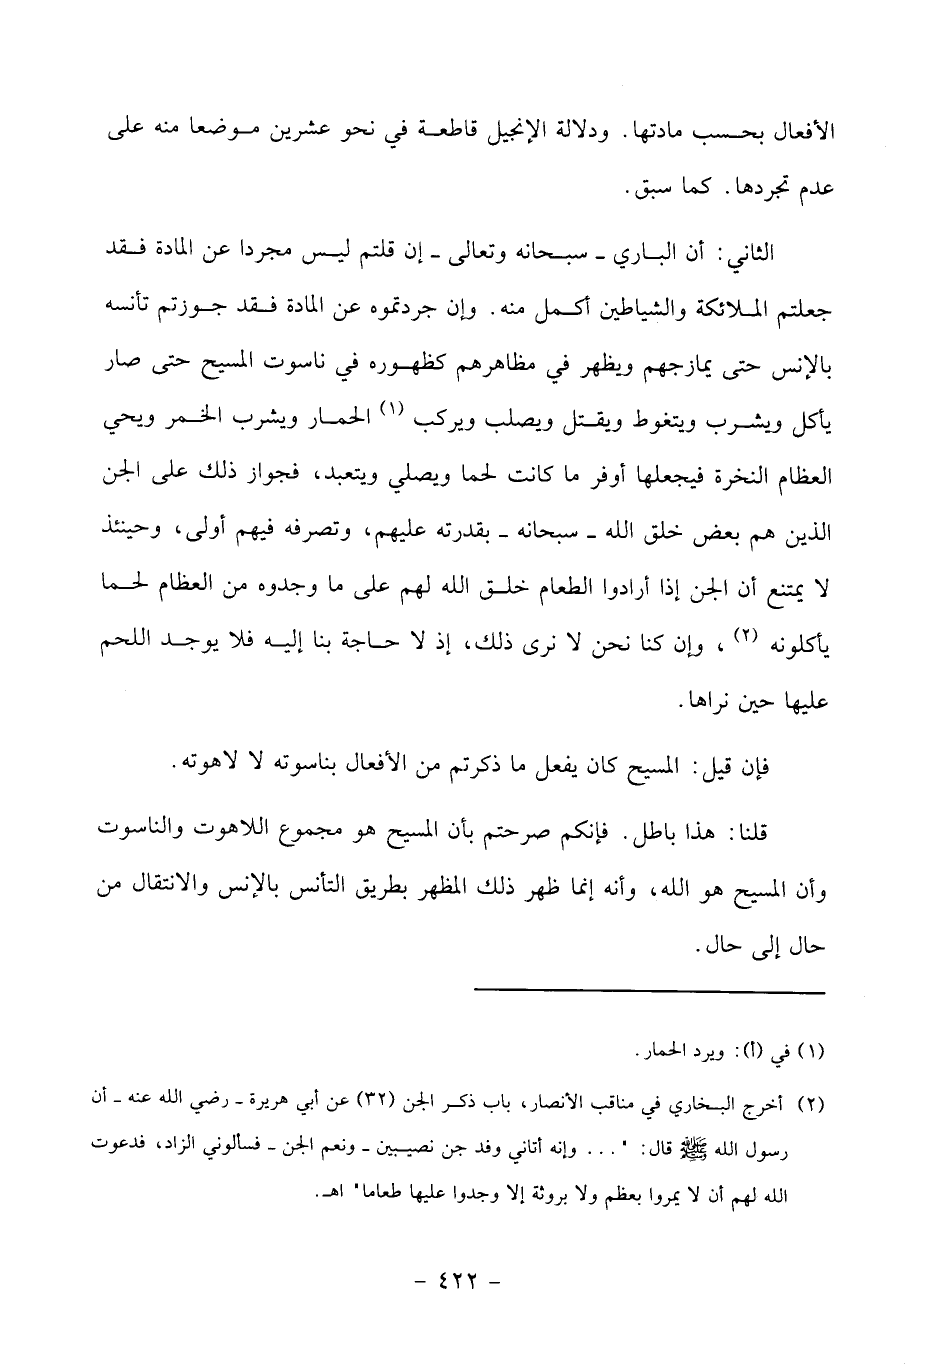 الأفعال بحسب مادتها. ودلالة الإنجيل قاطعة في نحو عشرين موضعا منه على
عدم تجردها. كما سبق.
الثاني: أن الباري - سبحانه وتعالى - إن قلتم ليس مجردا عن المادة فقد
جعلتم الملائكة والشياطين أكمل منه. وإن جردتموه عن المادة فقد جوزتم تأنسه
بالإنس حتى يمازجهم ويظهر في مظاهرهم كظهوره في ناسوت المسيح حتى صار
يأكل ويشرب ويتغوط ويقتل ويصلب ويركب (١) الحمار ويشرب الخمر ويحي
العظام النخرة فيجعلها أوفر ما كانت لحما ويصلي ويتعبد، فجواز ذلك على الجن
الذين هم بعض خلق الله - سبحانه - بقدرته عليهم، وتصرفه فيهم أولى، وحينئذ
لا يمتنع أن الجن إذا أرادوا الطعام خلق الله لهم على ما وجدوه من العظام لحما
يأكلونه (٢)، وإن كنا نحن لا نرى ذلك، إذ لا حاجة بنا إليه فلا يوجد اللحم
عليها حين نراها.
فإن قيل: المسيح كان يفعل ما ذكرتم من الأفعال بناسوته لا لاهوته.
قلنا: هذا باطل. فإنكم صرحتم بأن المسيح هو مجموع اللاهوت والناسوت
وأن المسيح هو الله، وأنه إنما ظهر ذلك المظهر بطريق التأنس بالإنس والانتقال من
حال إلى حال.
(١) في (أ): ويرد الحمار.
(٢) أخرج البخاري في مناقب الأنصار، باب ذكر الجن (٣٢) عن أبي هريرة - رضي الله عنه - أن
رسول الله ﷺ قال: "... وإنه أتاني وفد جن نصيبين - ونعم الجن - فسألوني الزاد، فدعوت
الله لهم أن لا يمروا بعظم ولا بروثة إلا وجدوا عليها طعاما" اهـ.
- ٤٢٢ -